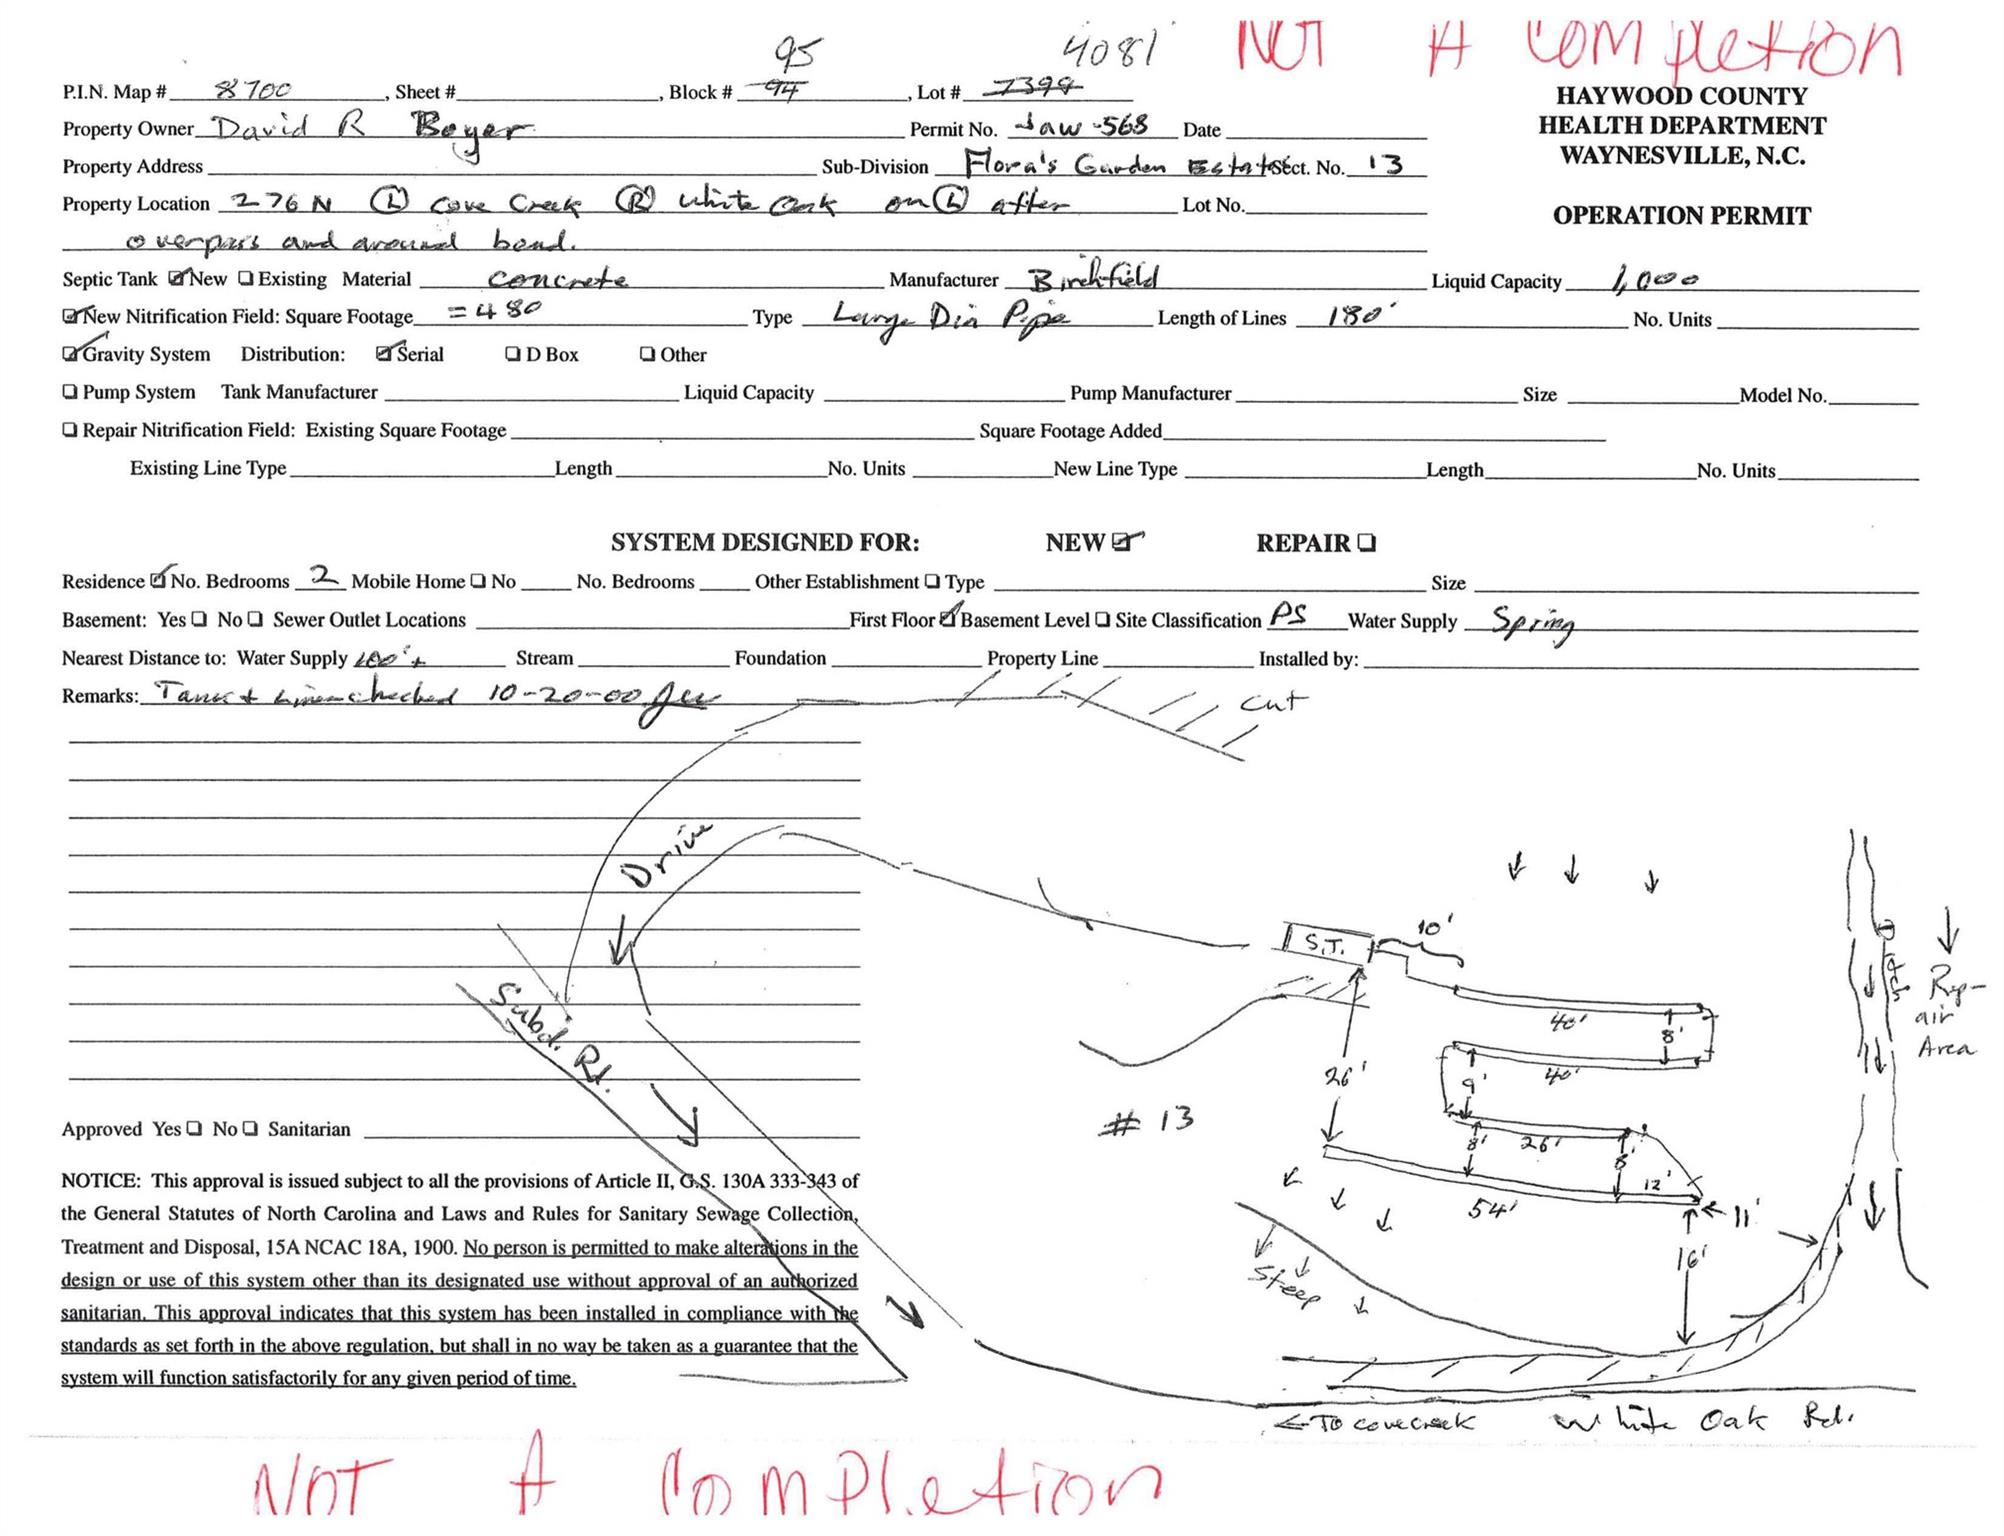 NOT A Completion
95 4081
P.I.N. Map # 8700, Sheet #, Block # 94, Lot # 7399
HAYWOOD COUNTY
HEALTH DEPARTMENT
WAYNESVILLE, N.C.
OPERATION PERMIT
Property Owner David R Boyer Permit No. Jaw-568 Date
Property Address Sub-Division Flora's Garden Estates Sect. No. 13
Property Location 276 N (L) Cove Creek (R) White Oak on (L) after Lot No.
overpass and around bend.
Septic Tank ☑ New ☐ Existing Material concrete Manufacturer Birchfield Liquid Capacity 1,000
☑ New Nitrification Field: Square Footage =480 Type Large Dia Pipe Length of Lines 180' No. Units
☑ Gravity System Distribution: ☑ Serial ☐ D Box ☐ Other
☐ Pump System Tank Manufacturer Liquid Capacity Pump Manufacturer Size Model No.
☐ Repair Nitrification Field: Existing Square Footage Square Footage Added
Existing Line Type Length No. Units New Line Type Length No. Units
SYSTEM DESIGNED FOR: NEW ☑ REPAIR ☐
Residence ☑ No. Bedrooms 2 Mobile Home ☐ No No. Bedrooms Other Establishment ☐ Type Size
Basement: Yes ☐ No ☐ Sewer Outlet Locations First Floor ☑ Basement Level ☐ Site Classification PS Water Supply Spring
Nearest Distance to: Water Supply 100'+ Stream Foundation Property Line Installed by:
Remarks: Tank + Lines checked 10-20-00
Cut
Drive
Subd. Rd.
S.T.
10'
40'
8'
40'
9'
26'
26'
8'
8'
12'
54'
11'
16'
# 13
Steep
Ditch
Rep-
air
Area
← To cove creek White Oak Rd.
Approved Yes ☐ No ☐ Sanitarian
NOTICE: This approval is issued subject to all the provisions of Article II, G.S. 130A 333-343 of
the General Statutes of North Carolina and Laws and Rules for Sanitary Sewage Collection,
Treatment and Disposal, 15A NCAC 18A, 1900. No person is permitted to make alterations in the
design or use of this system other than its designated use without approval of an authorized
sanitarian. This approval indicates that this system has been installed in compliance with the
standards as set forth in the above regulation, but shall in no way be taken as a guarantee that the
system will function satisfactorily for any given period of time.
NOT A Completion